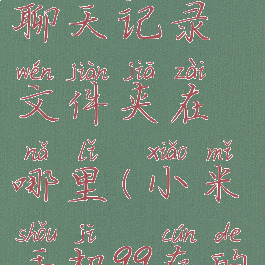 聊天记录
wén jiàn jiā zài
文件夹在
nǎ lǐ xiǎo mǐ
哪里(小米
shǒu jī cún de
手机 存的